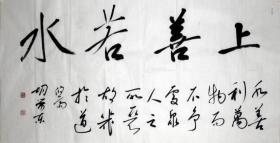 上善若水
水善
利萬
物而
不争
處眾
人之
所惡
故幾
於道